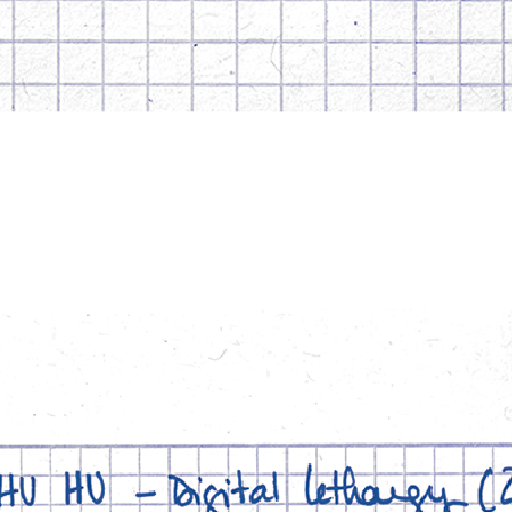 HU HU - Digital lethargy (2